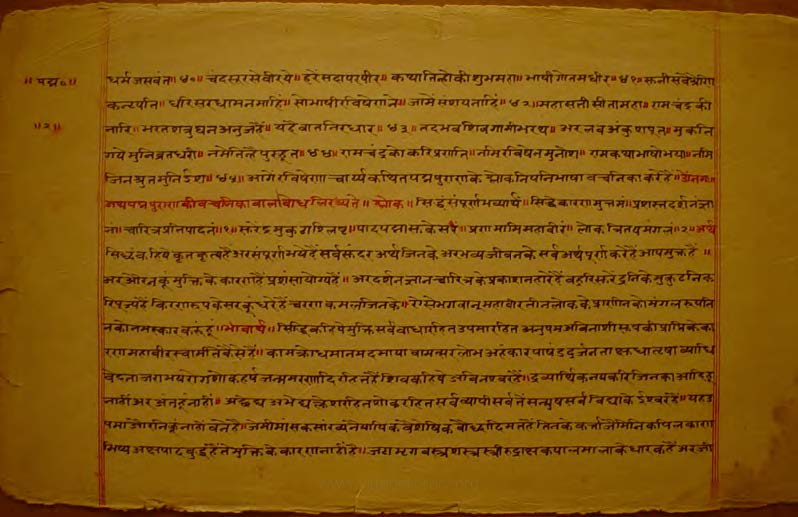 ॥पद्म०॥
॥२॥
धर्मजसवंत॥४०॥ चंदसूरसेवीरये॥ हरैसदापरपीर॥ कथातिन्होकीशुभमहा॥ भाषीगोतमधीर॥४१॥
धीरसरधामनमाहि॥ सोभाषीरविषेणने॥ जामैंसंशयनाहिं॥४२॥ महासतीसीतामहा॥ रामचंद्रकी
नारि॥ भरतशत्रुघनअनुजहैं॥ यहैबातनिरधार॥४३॥ तदभवशिवगामीभरथ॥ अरलवअंकुशपूत॥ मुक्ति
गयेमुनिव्रतधरी॥ नमेंतिन्हैंपुरहूत॥४४॥ रामचंद्रकोकरिप्रणाति॥ नमिरविषेनमुनीश॥ रामकथाभाषोभया॥ नमि
जिनश्रुतमुनिईश॥४५॥ आगेंरविषेणाचार्य्यकथितपद्मपुराणकेश्लोकनिपनिभाषावचनिकाकरैंहैं॥
अथपद्मपुराणकीवचनिकाबालाबोधलिख्यते॥ श्लोक॥ सिद्धंसंपूर्णभव्यार्थं॥ सिद्धेःकारणमुत्तमं॥ प्रशस्तदर्शनज्ञा
न॥ चारित्रप्रतिपादनं॥१॥ सुरेंद्रमुकुटाश्लिष्ट॥ पादपद्मांसुकेसरं॥ प्रणमामिमहावीरं॥ लोकत्रितयमंगलं॥२॥ अर्थ
सिद्धंकहियेकृतकृत्यहैंअरसंपूर्णभयेहैंसर्वसुंदरअर्थजिनकेअरभव्यजीवनकेसर्वअर्थपूर्णकरैंहैंआपमुक्तहैं॥
अरऔरनकूंमुक्तिकेकारणहैंप्रशंसायोग्यहैं॥ अरदर्शनज्ञानचारित्रकेप्रकाशनहारेहैंबहुरिसुरेंद्रनिकेमुकुटनिक
रिपूज्येहैंकिरणरूपकेसरकूंधरेंहैंचरणकमलजिनके॥ ऐसेभगवानमहावीरतीनलोककेप्राणीनकोमंगलरूपति
नकोनमस्कारकरूंहूं॥ भावार्थ॥ सिद्धिकहियेमुक्तिसर्वबाधारहितउपमारहितअनुपमअविनाशीसुखकीप्राप्तिकेका
रणमहावीरस्वामीतेकैसेहैं॥ कामक्रोधमानमदमायामत्सरलोभअहंकारपाषंडदुर्जनताक्षुधातृषाव्याधि
वेदनाजराभयरोगशोकहर्षजन्ममरणादिरहितहैंशिवकहियेअविनश्वरहैं॥ द्रव्यार्थिकनयकरिजिनकाआदिहू
नाहींअरअंतहूंनाहीं॥ अछेद्यअभेद्यक्लेशरहितशोकरहितसर्वव्यापीसर्वसन्मुखसर्वविद्याकेईश्वरहैं॥ यहउ
पमाऔरनिकूंनाहींबनेहैं॥ जेमीमांसकसांख्यनैयायिकवैशेषिकबौद्धादिमतहैंतिनकेकर्त्ताजैमिनिकपिलकाण
भिष्यअक्षपादबुद्धहैंतेमुक्तिकेकारणनाहींहैं॥ जटामृगवस्त्रशस्त्रस्त्रीरुद्राक्षकपालमालाकेधारकहैंअरजी